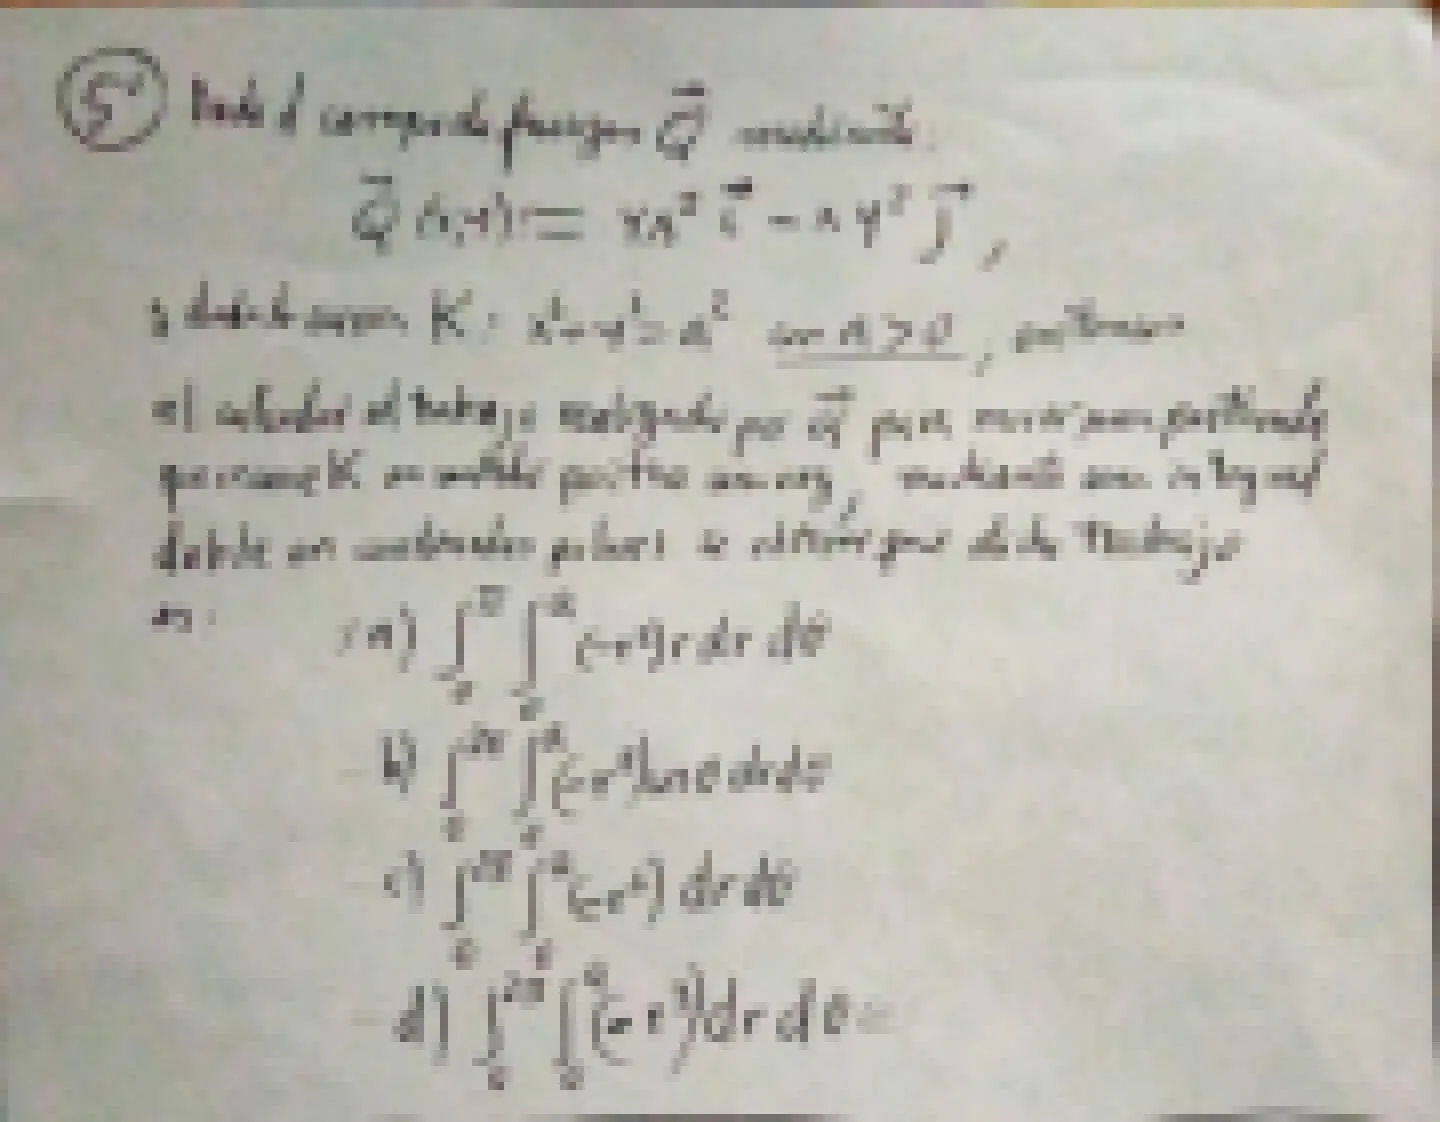 5) Dado el campo de fuerzas Q⃗ mediante:
Q⃗ (x,y) := yx² i⃗ - xy² j⃗ ,
K: x²+y²=a² con a>0, entonces
al calcular el trabajo realizado por Q⃗ para mover una partícula
que recorre K en sentido positivo una vez, mediante una integral
doble en coordenadas polares se obtiene que dicho trabajo
es:
a) ∫₀^π ∫₀^a (-r²) r dr dθ
b) ∫₀^2π ∫₀^a dr dθ
c) ∫₀^2π ∫₀^a dr dθ
d) ∫₀^2π ∫₀^a (-r³) dr dθ